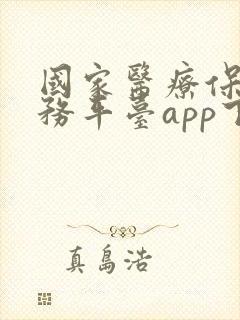 國家醫療保
務平臺app下
真島浩